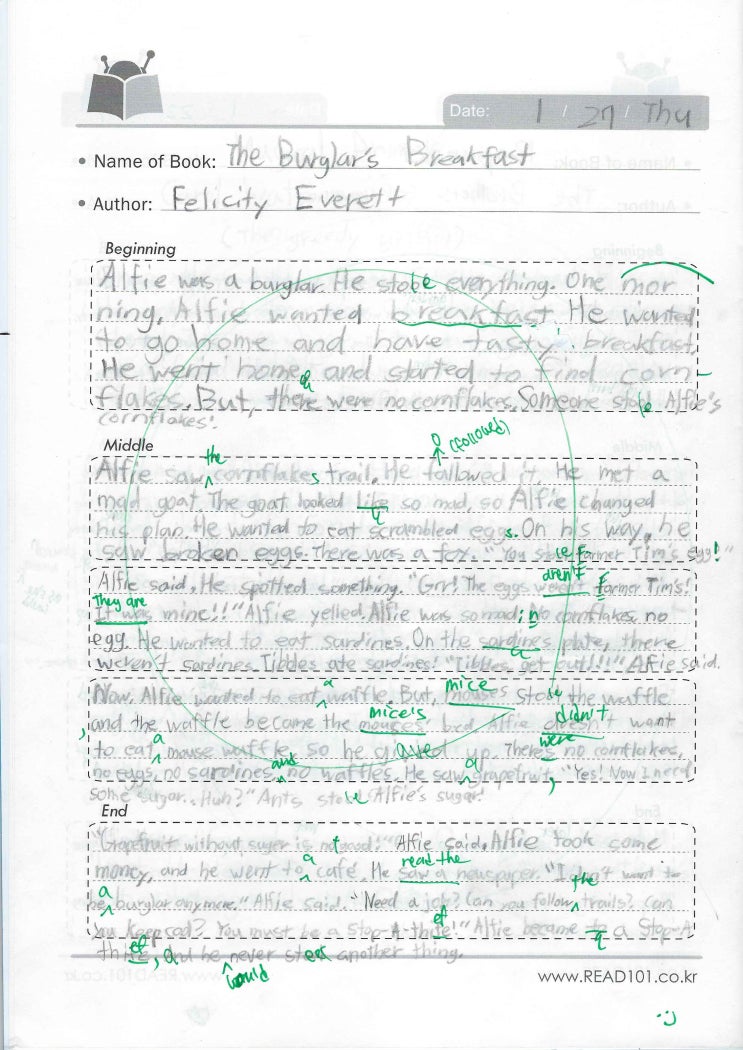 Date: 1 / 27 / Thu
• Name of Book: The Burglar's Breakfast
• Author: Felicity Everett
Beginning
Alfie was a burglar. He stole everything. One mor
ning, Alfie wanted breakfast. He wanted
to go home and have tasty breakfast.
He went home and started to find corn-
flakes. But, there were no cornflakes. Someone stole Alfie's
cornflakes.
Middle
the o (followed)
Alfie saw cornflakes trail. He followed it. He met a
mad goat. The goat looked like so mad, so Alfie changed
his plan. He wanted to eat scrambled eggs. On his way, he
saw broken eggs. There was a fox. "You stole Farmer Tim's egg!"
aren't
Alfie said. He spotted something. "Grr! The eggs weren't Farmer Tim's!
They are
It was mine!!" Alfie yelled. Alfie was so mad; no cornflakes, no
egg. He wanted to eat sardines. On the sardines plate, there
weren't sardines. Tibbles ate sardines! "Tibbles, get out!!!" Alfie said.
a mice
Now, Alfie wanted to eat waffle. But, mouses stole the waffle
mice's didn't
, and the waffle became the mouses bed. Alfie doesn't want
a were
to eat mouse waffle, so he gaved up. There's no cornflakes,
and a
no eggs, no sardines, no waffles. He saw grapefruit, "Yes! Now I need
some sugar.. Huh?" Ants stole Alfie's sugar!
End
"Grapefruit without suger is not good!" Alfie said. Alfie took some
a read the
money, and he went to café. He saw a newspaper. "I don't want to
a the
be burglar anymore." Alfie said. "Need a job? Can you follow trails? Can
ef
you keep cool? You must be a Stop-A-thife!" Alfie became to a Stop-A
thief, and he never steal another thing.
would
www.READ101.co.kr